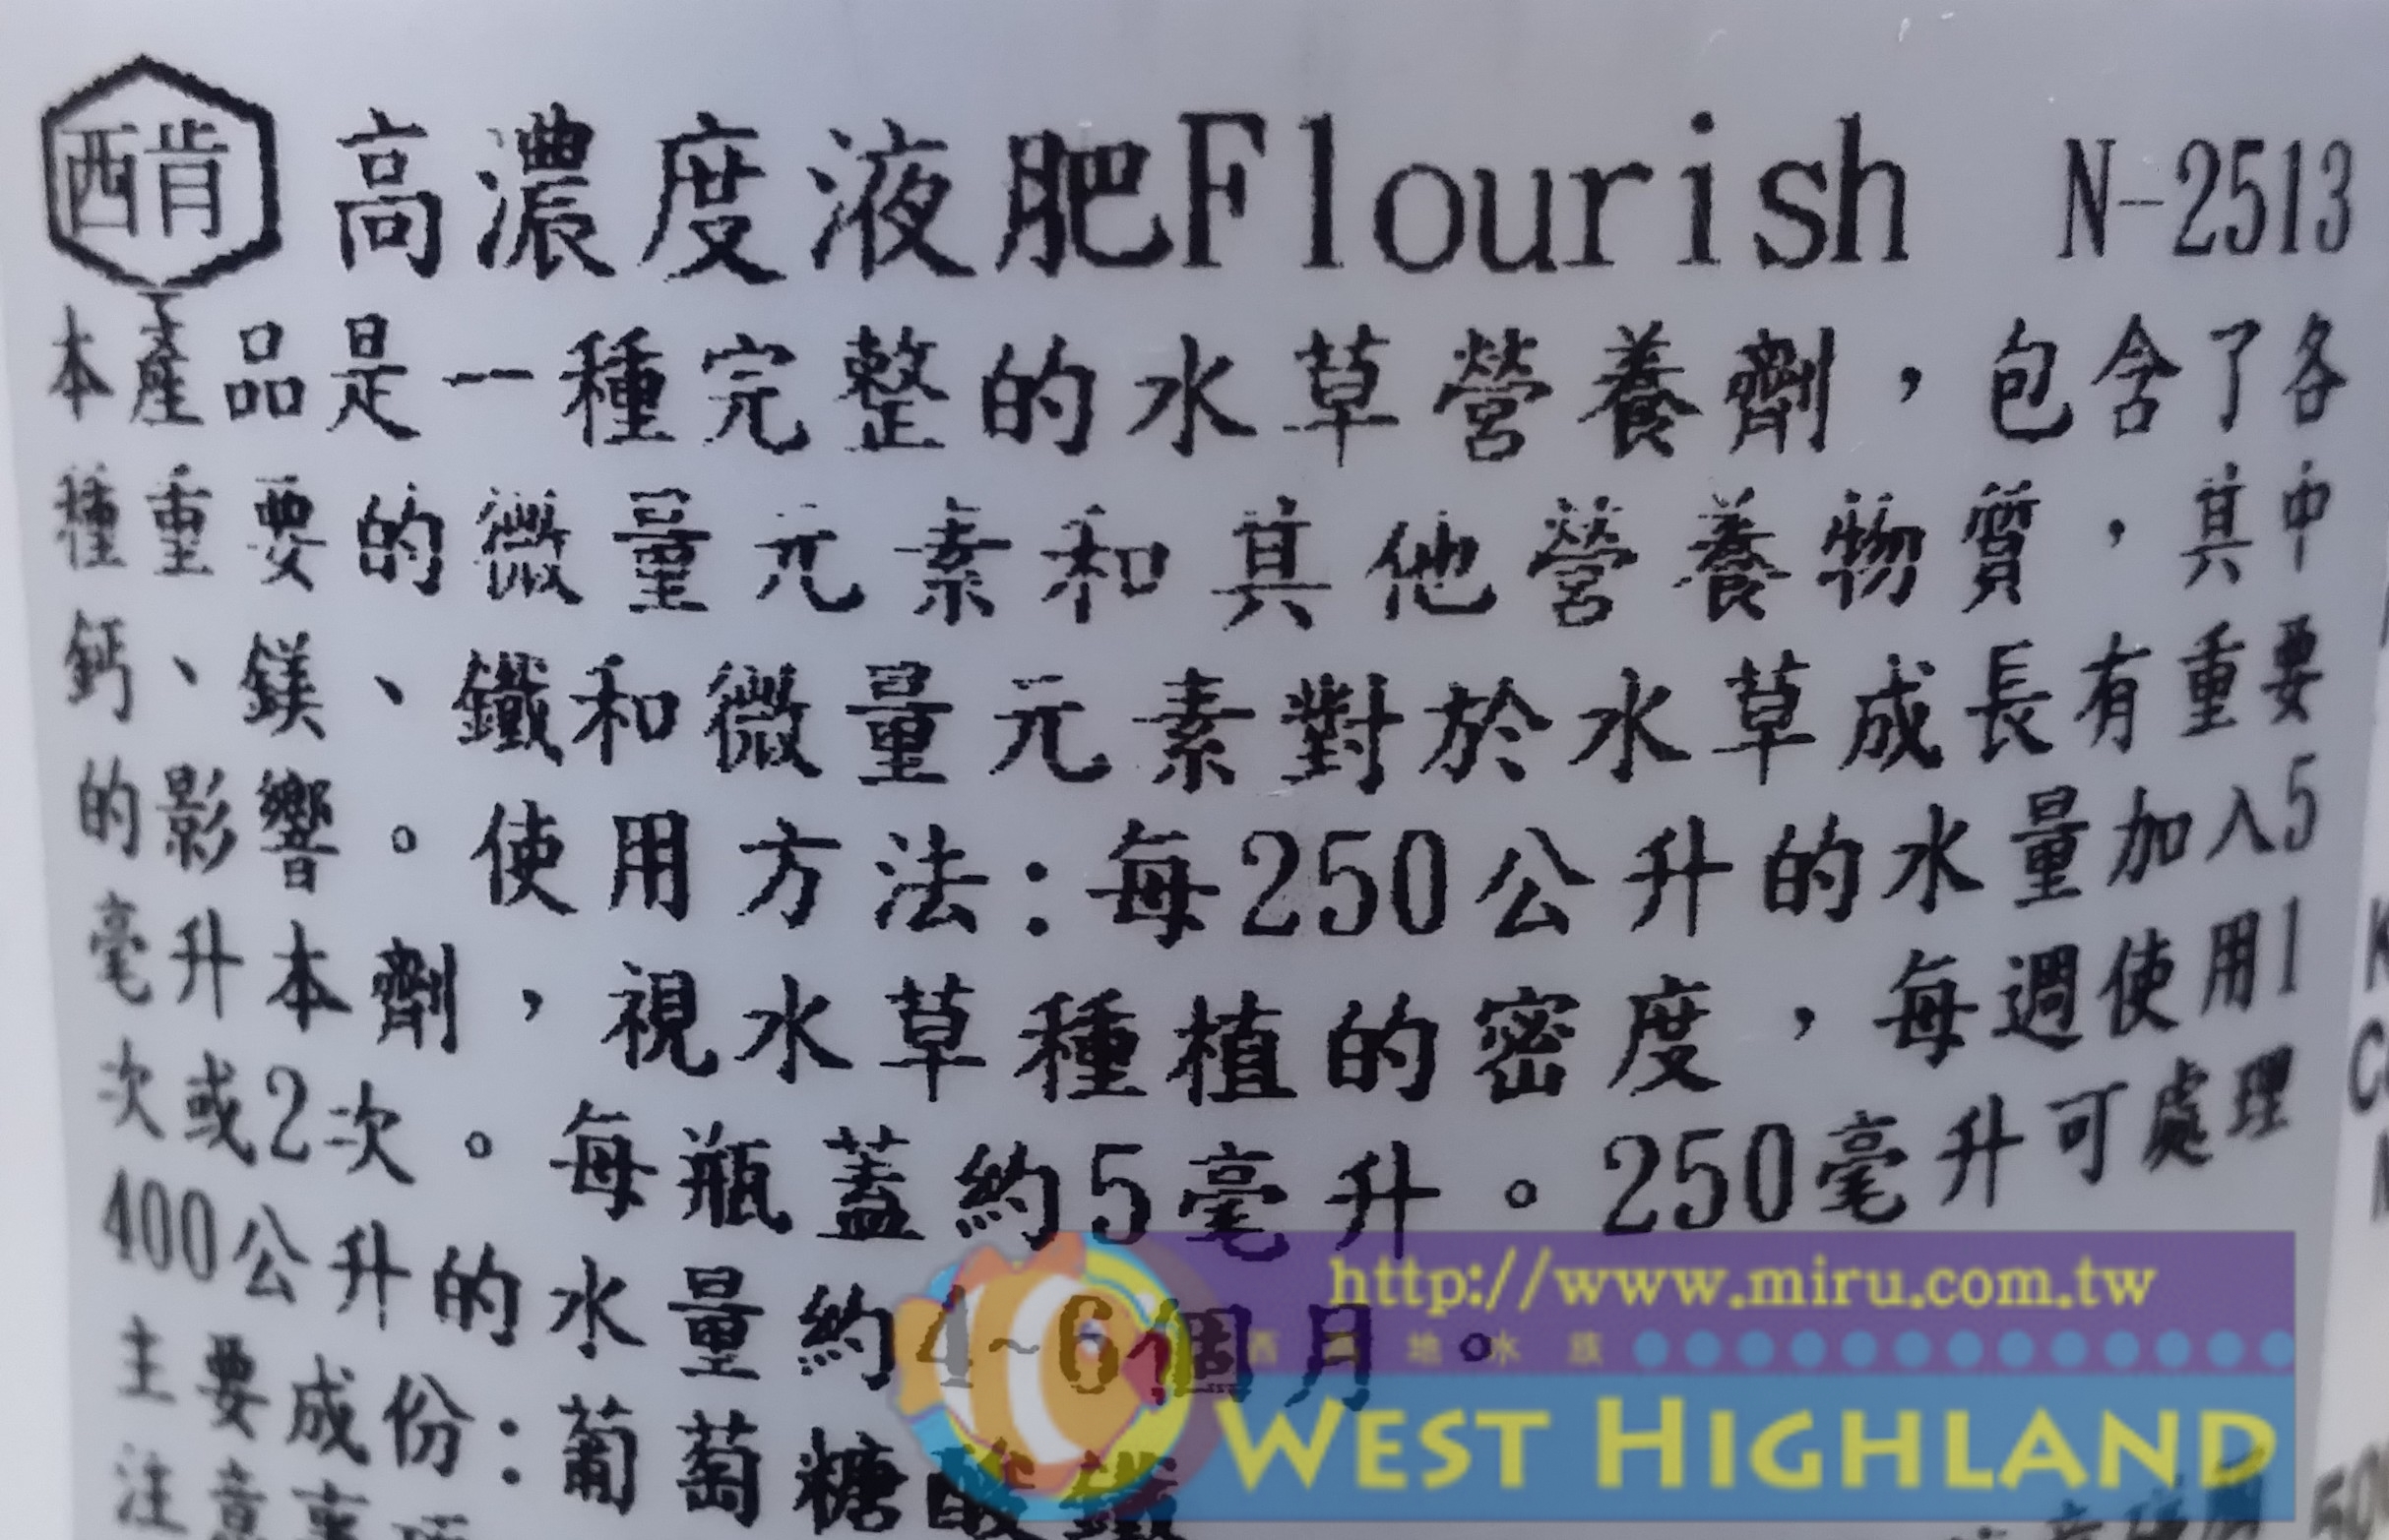 西肯 高濃度液肥Flourish N-2513
本產品是一種完整的水草營養劑，包含了各
種重要的微量元素和其他營養物質，其中
鈣、鎂、鐵和微量元素對於水草成長有重要
的影響。使用方法：每250公升的水量加入5
毫升本劑，視水草種植的密度，每週使用1
次或2次。每瓶蓋約5毫升。250毫升可處理
400公升的水量約4~6個月。
主要成份：葡萄糖酸鐵
注意事項
http://www.miru.com.tw
西高地水族
WEST HIGHLAND